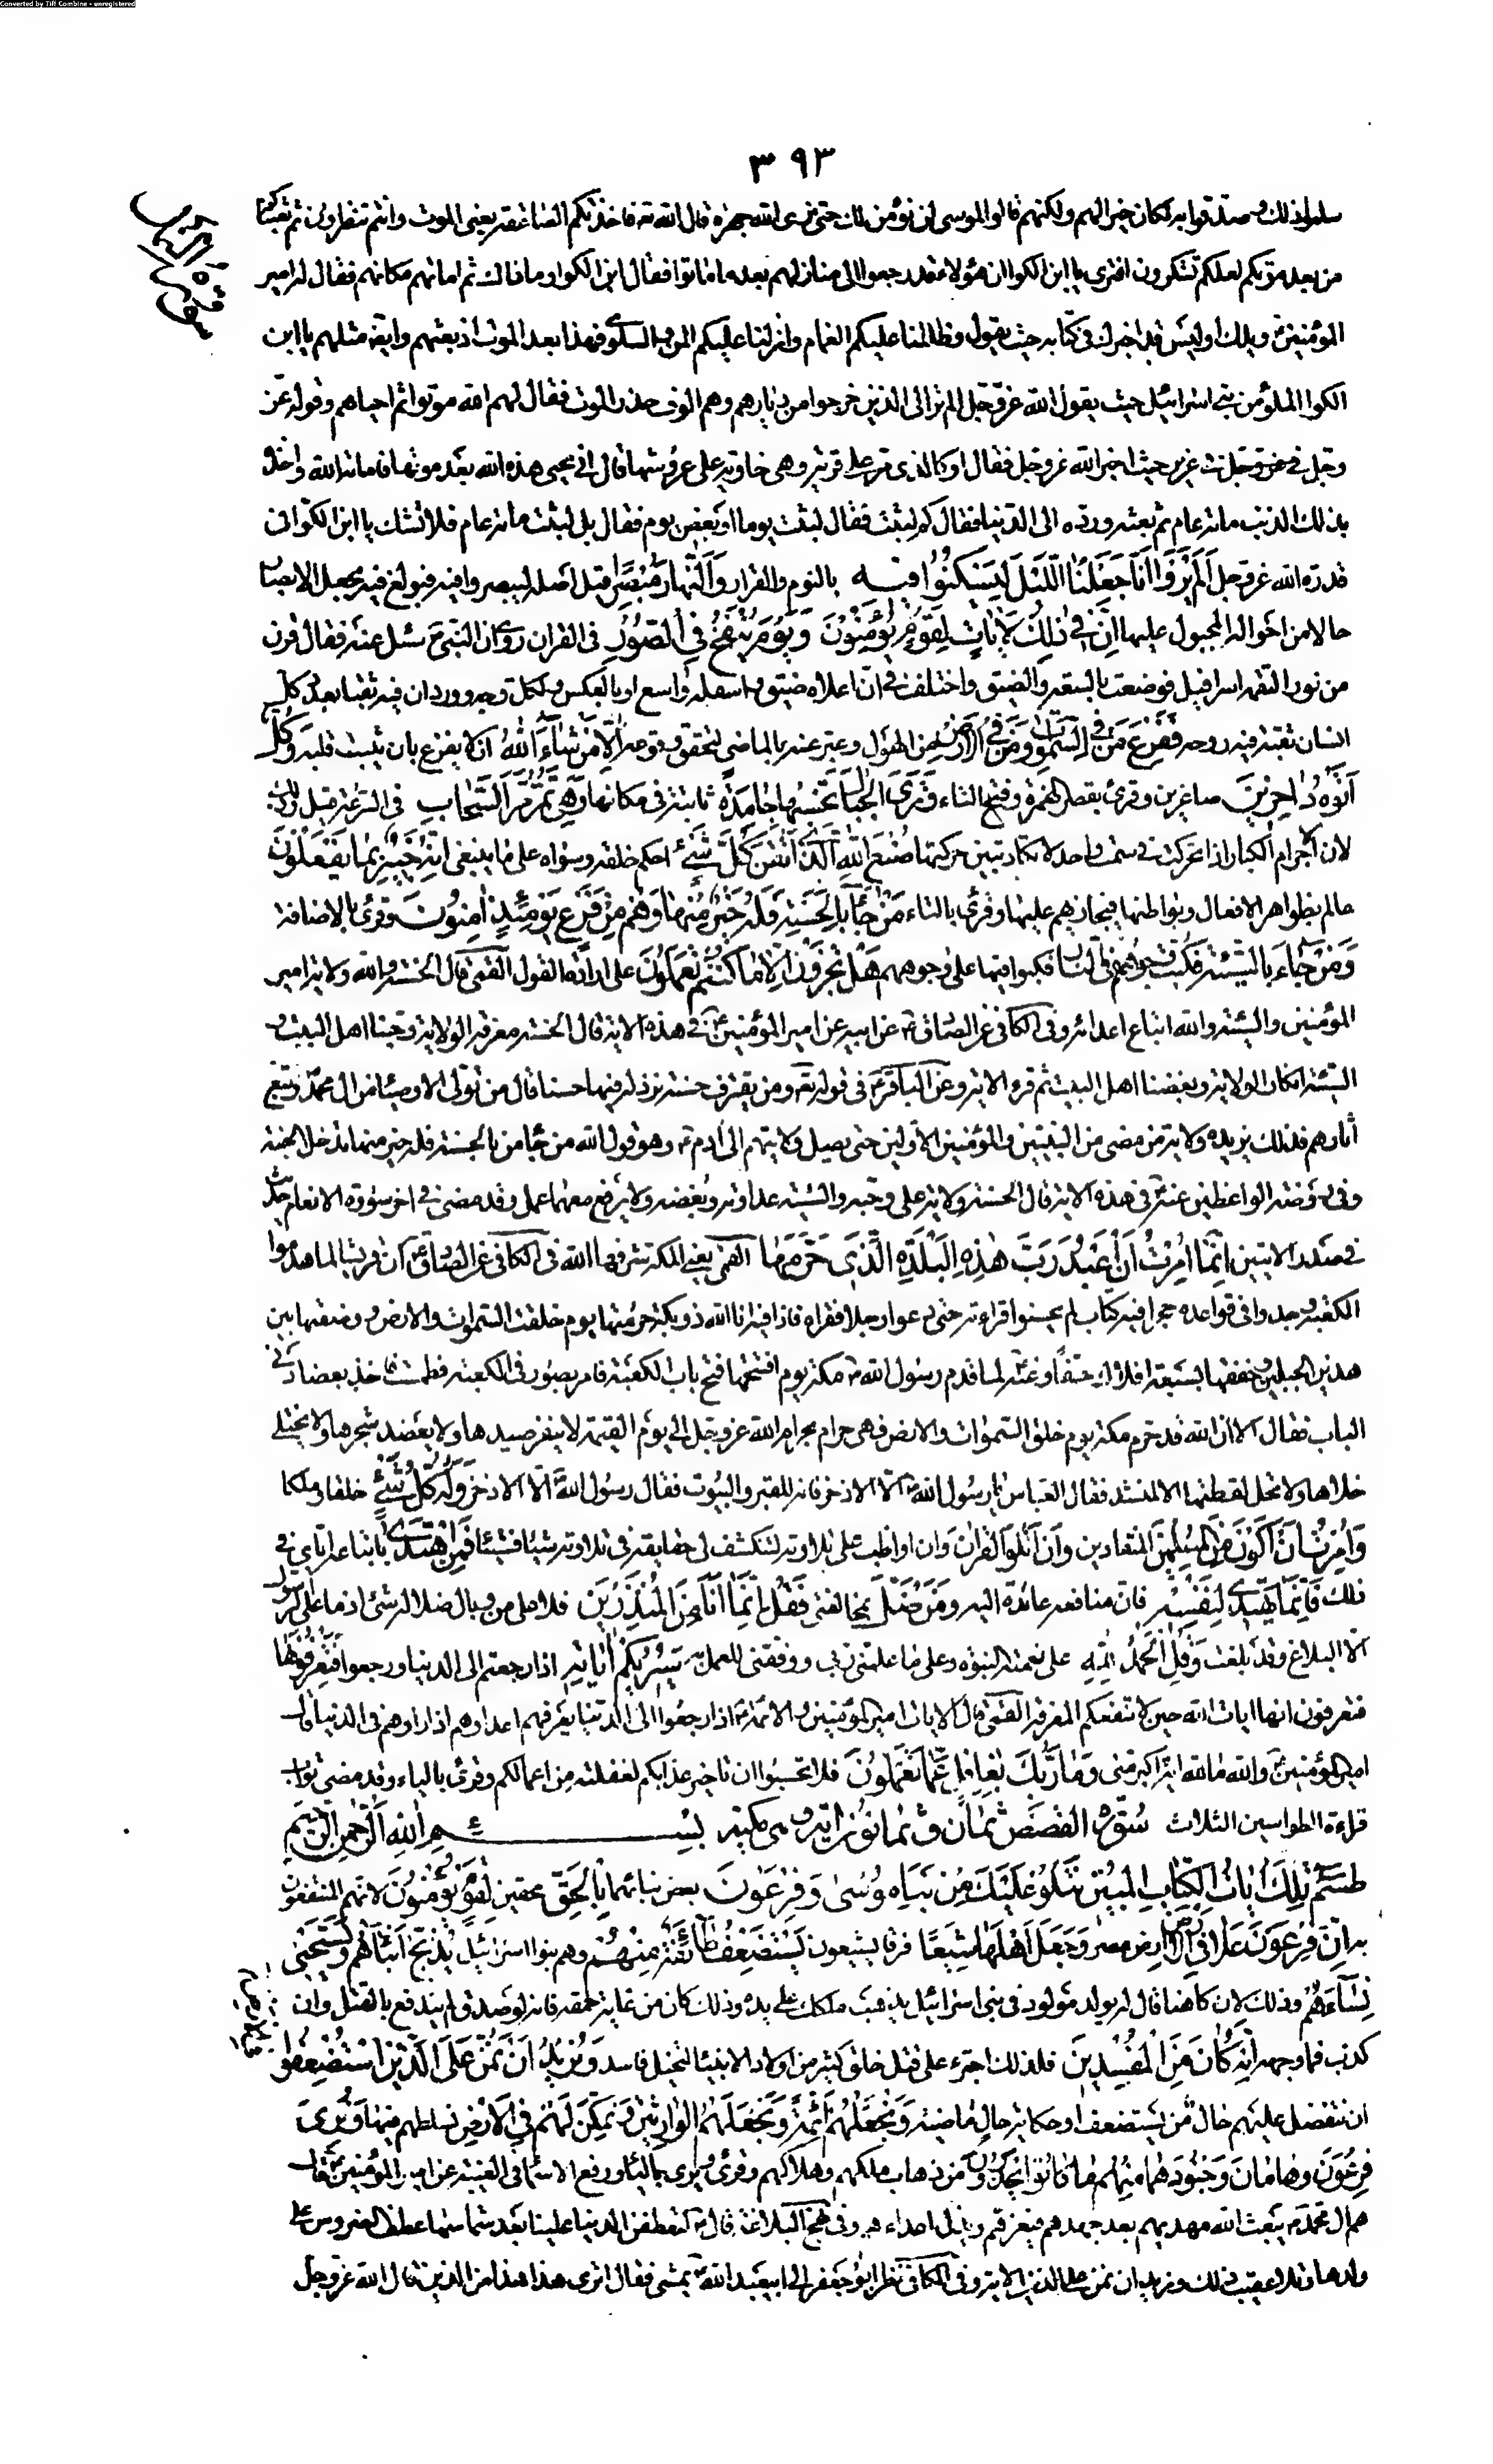 Converted by Tiff Combine - unregistered
٣٩٣
سلموا ذلك وصدقوا به لكان خيرا لهم ولكنهم قالوا لموسى لن نؤمن لك حتى نرى الله جهرة قال الله تع فاخذتكم الصاعقة يعنى الموت وانتم تنظرون ثم بعثناكم
من بعد موتكم لعلكم تشكرون افترى يا ابن الكوا ان هؤلاء قد رجعوا الى منازلهم بعد ما ماتوا فقال ابن الكوا وما ذاك ثم اماتهم مكانهم فقال له امير
المؤمنين ع ويلك اوليس قد اخبرك فى كتابه حيث يقول وظللنا عليكم الغمام وانزلنا عليكم المن والسلوى فهذا بعد الموت اذ بعثهم وايضا مثلهم يا ابن
الكوا الملؤ من بنى اسرائيل حيث يقول الله عز وجل الم تر الى الذين خرجوا من ديارهم وهم الوف حذر الموت فقال لهم الله موتوا ثم احياهم وقوله عز
وجل فى عزير حيث اخبر الله عز وجل فقال او كالذى مر على قرية وهى خاوية على عروشها قال انى يحيى هذه الله بعد موتها فاماته الله واخذه
بذلك الذنب مائة عام ثم بعثه ورده الى الدنيا فقال كم لبثت فقال لبثت يوما او بعض يوم فقال بل لبثت مائة عام فلا تشك يا ابن الكوا فى
قدرة الله عز وجل اَلَمْ يَرَوْا اَنَّا جَعَلْنَا اللَّيْلَ لِيَسْكُنُوا فيه بالنوم والقرار وَالنَّهارَ مُبْصِراً قيل اصله ليبصروا فيه فبولغ فيه بجعل الابصار
حالا من احواله المجبول عليها اِنَّ فِى ذلِكَ لَاياتٍ لِقَوْمٍ يُؤْمِنُونَ وَيَوْمَ يُنْفَخُ فِى الصُّورِ فى القران روى ان النبى ص سئل عنه فقال قرن
من نور التقمه اسرافيل فوصف بالسعة والضيق واختلف فى ان اعلاه ضيق واسفله واسع او بالعكس ولكل وجه وورد ان فيه ثقبا بعدد كل
انسان ثقبة فيه روحه فَفَزِعَ مَنْ فِى السَّمواتِ وَمَنْ فِى الْاَرْضِ من الهول وعبر عنه بالماضى لتحقق وقوعه اِلَّا مَنْ شاءَ اللهُ ان لا يفزع بان يثبت قلبه وَكُلٌّ
اَتَوْهُ داخِرِينَ صاغرين وقرئ بقصر الهمزة وفتح التاء وَتَرَى الْجِبالَ تَحْسَبُها جامِدَةً ثابتة فى مكانها وَهِىَ تَمُرُّ مَرَّ السَّحابِ فى السرعة قيل وذلك
لان الاجرام الكبار اذا تحركت فى سمت واحد لا تكاد تتبين حركتها صُنْعَ اللهِ الَّذِى اَتْقَنَ كُلَّ شَىْءٍ احكم خلقه وسواه على ما ينبغى اِنَّهُ خَبِيرٌ بِما يَفْعَلُونَ
عالم بظواهر الافعال وبواطنها فيجازيهم عليها وقرئ بالتاء مَنْ جاءَ بِالْحَسَنَةِ فَلَهُ خَيْرٌ مِنْها وَهُمْ مِنْ فَزَعٍ يَوْمَئِذٍ امِنُونَ وقرئ بالاضافة
وَمَنْ جاءَ بِالسَّيِّئَةِ فَكُبَّتْ وُجُوهُهُمْ فِى النَّارِ فكبوا فيها على وجوههم هَلْ تُجْزَوْنَ اِلَّا ما كُنْتُمْ تَعْمَلُونَ على ارادة القول القمى قال الحسنة والله ولاية امير
المؤمنين والسيئة والله اتباع اعدائه وفى الكافى عن الصادق ع عن ابيه عن امير المؤمنين ع فى هذه الاية قال الحسنة معرفة الولاية وحبنا اهل البيت و
السيئة انكار الولاية وبغضنا اهل البيت ثم قرء الاية وعن الباقر ع فى قوله تع ومن يقترف حسنة نزد له فيها حسنا قال من تولى الاوصياء من ال محمد واتبع
اثارهم فذلك يزيده ولاية من مضى من النبيين والمؤمنين الاولين حتى يصل ولايتهم الى ادم ع وهو قول الله من جاء بالحسنة فله خير منها تدخله الجنة
وفى روضة الواعظين عنه ع فى هذه الاية قال الحسنة ولاية على وحبه والسيئة عداوته وبغضه ولا يرفع معهما عمل وقد مضى فى اخر سورة الانعام حديث
فى صدر الايتين اِنَّما اُمِرْتُ اَنْ اَعْبُدَ رَبَّ هذِهِ الْبَلْدَةِ الَّذِى حَرَّمَها القمى يعنى مكة شرفها الله فى الكافى عن الصادق ع ان قريشا لما هدموا
الكعبة وجدوا فى قواعده حجرا فيه كتاب لم يحسنوا قراءته حتى دعوا رجلا فقراه فاذا فيه انا الله ذو بكة حرمتها يوم خلقت السموات والارض ووضعتها بين
هذين الجبلين وحففتها بسبعة املاك حفا وعنه ع لما قدم رسول الله ص مكة يوم افتتحها فتح باب الكعبة فامر بصور فى الكعبة فطمست فاخذ بعضادتى
الباب فقال الا ان الله قد حرم مكة يوم خلق السموات والارض فهى حرام بحرام الله عز وجل الى يوم القيمة لا ينفر صيدها ولا يعضد شجرها ولا يختلى
خلاها ولا تحل لقطتها الا لمنشد فقال العباس يا رسول الله الا الاذخر فانه للقبر والبيوت فقال رسول الله الا الاذخر وَلَهُ كُلُّ شَىْءٍ خلقا وملكا
وَاُمِرْتُ اَنْ اَكُونَ مِنَ الْمُسْلِمِينَ المنقادين وَاَنْ اَتْلُوَا الْقُرْانَ وان اواظب على تلاوته لتنكشف لى حقايقه فى تلاوته شيئا فشيئا فَمَنِ اهْتَدى باتباعه اياى فى
ذلك فَاِنَّما يَهْتَدِى لِنَفْسِهِ فان منافعه عائدة اليه وَمَنْ ضَلَّ بمخالفتى فَقُلْ اِنَّما اَنَا مِنَ الْمُنْذِرِينَ فلا على من وبال ضلاله شئ اذ ما على الرسول
الا البلاغ وقد بلغت وَقُلِ الْحَمْدُ لِلّهِ على نعمة النبوة وعلى ما علمنى ربى ووفقنى للعمل به سَيُرِيكُمْ اياتِهِ اذا رجعتم الى الدنيا ورجعوا فَتَعْرِفُونَها
فتعرفون انها ايات الله حين لا تنفعكم المعرفة القمى قال الايات امير المؤمنين والائمة ع اذا رجعوا الى الدنيا يعرفهم اعداؤهم اذا راوهم فى الدنيا قال
امير المؤمنين ع والله ما لله اية اكبر منى وَما رَبُّكَ بِغافِلٍ عَمَّا تَعْمَلُونَ فلا تحسبوا ان تاخير عذابكم لغفلته من اعمالكم وقرئ بالياء وقد مضى ثواب
قراءة الطواسين الثلاث سُورَةُ القَصَصِ ثمان وثمانون اية وهى مكية بِسْمِ اللهِ الرَّحْمنِ الرَّحِيمِ
طسم تِلْكَ اياتُ الْكِتابِ الْمُبِينِ نَتْلُو عَلَيْكَ مِنْ نَبَاِ مُوسى وَفِرْعَوْنَ بعض نبائهما بِالْحَقِّ محقين لِقَوْمٍ يُؤْمِنُونَ لانهم المنتفعون
به اِنَّ فِرْعَوْنَ عَلا فِى الْاَرْضِ ارض مصر وَجَعَلَ اَهْلَها شِيَعاً فرقا يشيعون يَسْتَضْعِفُ طائِفَةً مِنْهُمْ وهم بنوا اسرائيل يُذَبِّحُ اَبْناءَهُمْ وَيَسْتَحْيِى
نِساءَهُمْ وذلك لان كاهنا قال له يولد مولود فى بنى اسرائيل يذهب ملكك على يده وذلك كان من غاية حمقه فانه لو صدق لم يندفع بالقتل وان
كذب فما وجهه اِنَّهُ كانَ مِنَ الْمُفْسِدِينَ فلذلك اجترء على قتل خلق كثير من اولاد الانبياء لتخيل فاسد وَنُرِيدُ اَنْ نَمُنَّ عَلَى الَّذِينَ اسْتُضْعِفُوا
ان نتفضل عليهم حال من يستضعف او حكاية حال ماضية وَنَجْعَلَهُمْ اَئِمَّةً وَنَجْعَلَهُمُ الْوارِثِينَ وَنُمَكِّنَ لَهُمْ فِى الْاَرْضِ نسلطهم فيها وَنُرِىَ
فِرْعَوْنَ وَهامانَ وَجُنُودَهُما مِنْهُمْ ما كانُوا يَحْذَرُونَ من ذهاب ملكهم وهلاكهم وقرئ ويرى بالياء ورفع الاسماء فى الغيبة عن امير المؤمنين ع قال
هم ال محمد ص يبعث الله مهديهم بعد جهدهم فيعزهم ويذل اعداءهم وفى نهج البلاغة قال ع لتعطفن الدنيا علينا بعد شماسها عطف الضروس على
ولدها وتلا عقيب ذلك ونريد ان نمن على الذين الاية وفى الكافى نظر ابو جعفر ع الى ابيعبد الله ع يمشى فقال اترى هذا هذا من الذين قال الله عز وجل